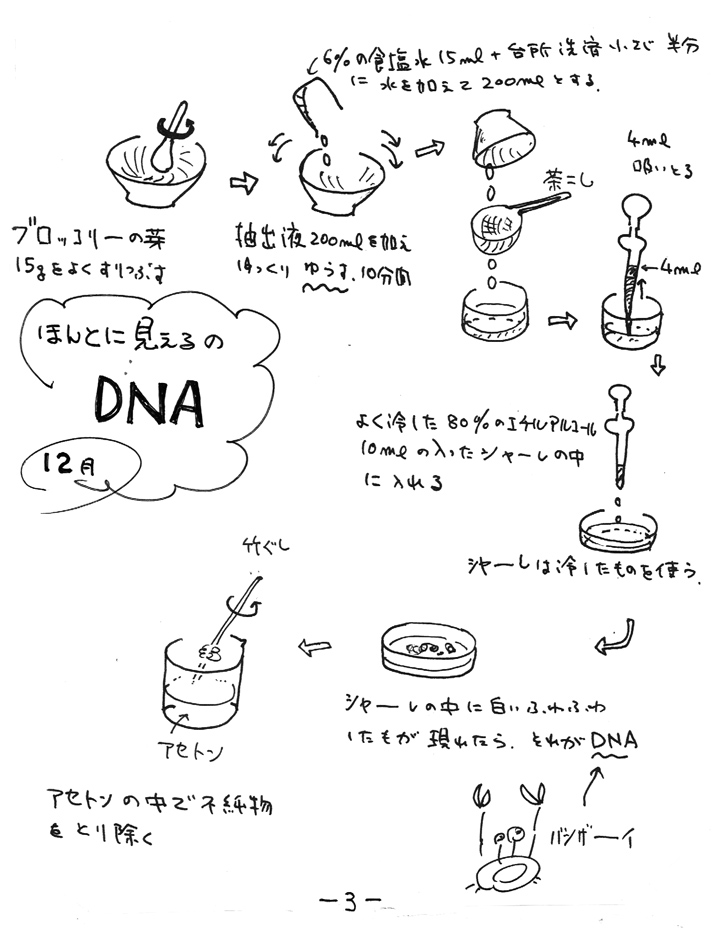 6%の食塩水15ml+台所洗済小さじ半分
に水を加えて200mlとする.
ブロッコリーの芽
15gをよくすりつぶす
抽出液200mlを加え
ゆっくりゆらす.10分間
茶こし
4ml
吸いとる
←4ml
ほんとに見えるの
DNA
12月
よく冷した80%のエチルアルコール
10mlの入ったシャーレの中
に入れる
シャーレは冷したものを使う.
シャーレの中に白いふわふわ
したもが現れたら.それがDNA
バンザーイ
竹ぐし
アセトン
アセトンの中で不純物
をとり除く
-3-